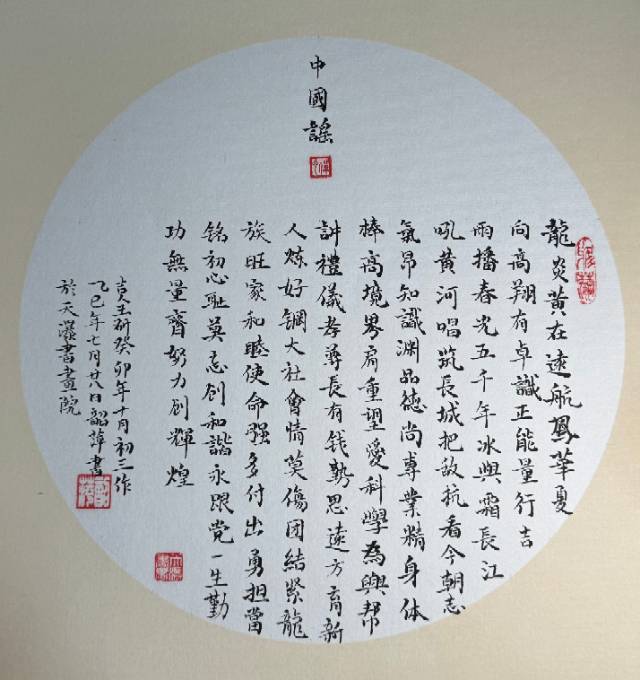 中國謠
龍炎黃在遠航鳳華夏
向高翔有卓識正能量行吉
雨播春光五千年冰與霜長江
吼黃河唱筑長城把敌抗看今朝志
氣昂知識渊品德尚專業精身体
棒高境界肩重望愛科學為興帮
討禮儀孝尋長有钱勢思遠方育新
人炼好鋼大社會情莫傷团結紧龍
族旺家和睦使命强多付出勇担當
铭初心耻莫忘创和諧永跟党一生勤
功無量齊努力创輝煌
袁玉研癸卯年十月初三作
乙巳年七月廿八日韶萍書
於天滋書畫院